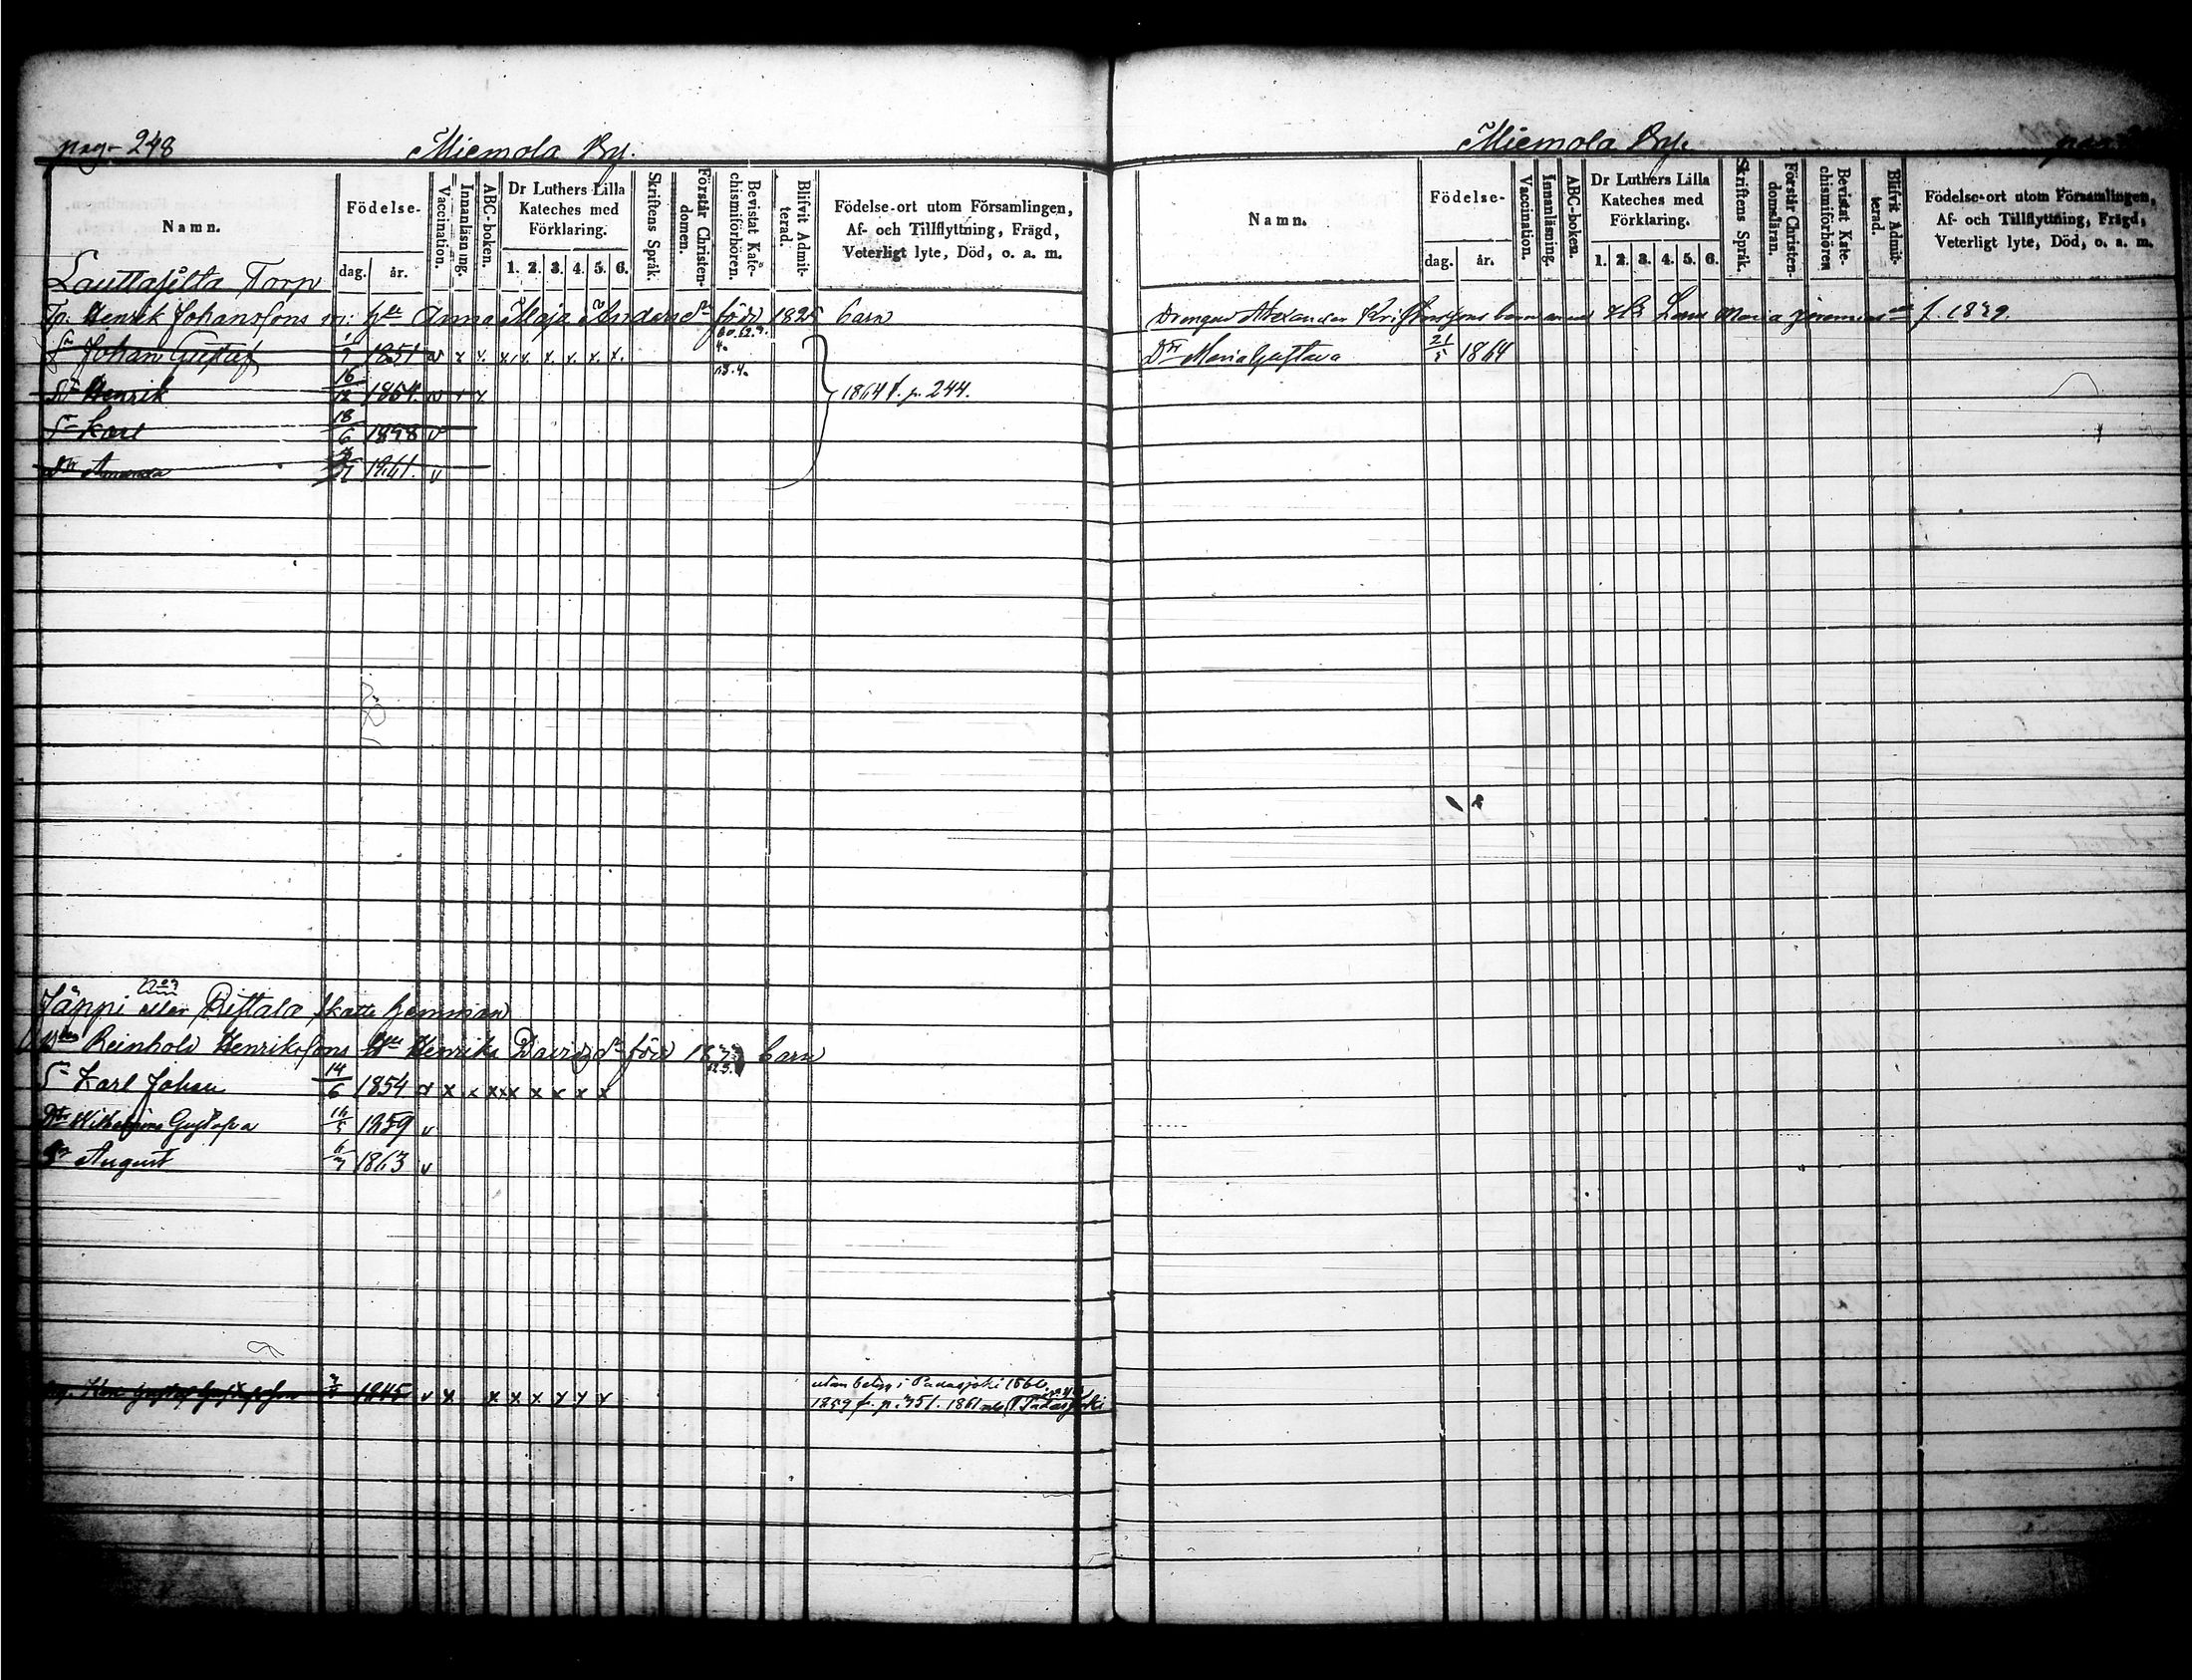 pag. 248
Miemola By.
Namn.
Födelse-
dag.
år.
Vaccination.
Innanläsning.
ABC-boken.
Dr Luthers Lilla Kateches med Förklaring.
1. 2. 3. 4. 5. 6.
Skriftens Språk.
Förstår Christen-domen.
Bevistat Kate-chismiförhören.
Blifvit Admit-terad.
Födelse-ort utom Församlingen,
Af- och Tillflyttning, Frägd,
Veterligt lyte, Död, o. a. m.
Lauttasilta Torp
Tp. Henrik Johanssons m: hu Anna Maja Andersdr född 1825 barn
Sn Johan Gustaf 1/9 1851 v x x x x x x x x.
Sn Henrik 16/12 1854. v x x 1864 f. p. 244.
Sn Karl 18/6 1858 v
Dr Amanda 1861. v
Jäppi eller Ristala skatte hemman
Reinhold Henrikssons Henrika Davidsdr född barn
Sn Karl Johan 14/6 1854 v x x x x x x x x x
Dtr Wilhelmina Gustava 16/5 1859 v
Sn August 6/7 1863 v
Gustaf Gustafsson 1845 v x x x x x x x
utan betyg i Padasjoki
1859 f. p. 751. 1861 Padasjoki
Miemola By.
Namn.
Födelse-
dag.
år.
Vaccination.
Innanläsning.
ABC-boken.
Dr Luthers Lilla Kateches med Förklaring.
1. 2. 3. 4. 5. 6.
Skriftens Språk.
Förstår Christen-domsläran.
Bevistat Kate-chismiförhören
Blifvit Admit-terad.
Födelse-ort utom Församlingen,
Af- och Tillflyttning, Frägd,
Veterligt lyte, Död, o. a. m.
Drengen Alexander Maria f. 1839.
Dr Maria Gustava 21/5 1864